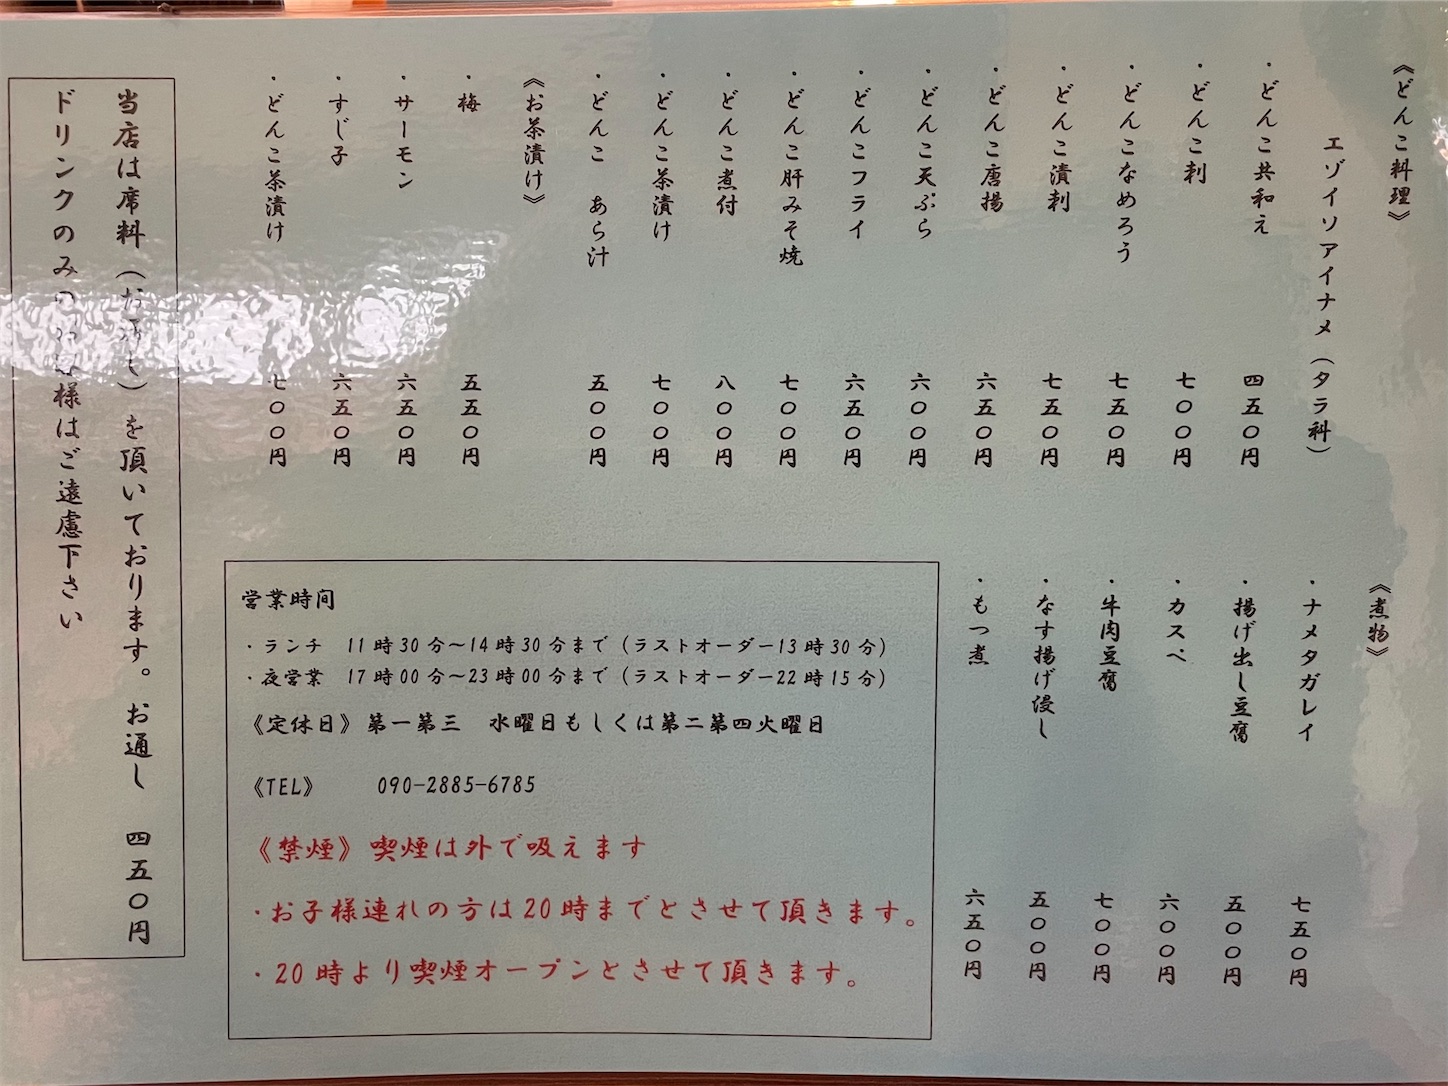 《どんこ料理》
エゾイソアイナメ(タラ科)
・どんこ共和え 四五〇円
・どんこ刺 七〇〇円
・どんこなめろう 七五〇円
・どんこ漬刺 七五〇円
・どんこ唐揚 六五〇円
・どんこ天ぷら 六〇〇円
・どんこフライ 六五〇円
・どんこ肝みそ焼 七〇〇円
・どんこ煮付 八〇〇円
・どんこ茶漬け 七〇〇円
・どんこ あら汁 五〇〇円
《お茶漬け》
・梅 五五〇円
・サーモン 六五〇円
・すじ子 六五〇円
・どんこ茶漬け 七〇〇円
《煮物》
・ナメタガレイ 七五〇円
・揚げ出し豆腐 五〇〇円
・カスベ 六〇〇円
・牛肉豆腐 七〇〇円
・なす揚げ浸し 五〇〇円
・もつ煮 六五〇円
営業時間
・ランチ 11時30分～14時30分まで(ラストオーダー13時30分)
・夜営業 17時00分～23時00分まで(ラストオーダー22時15分)
《定休日》第一第三 水曜日もしくは第二第四火曜日
《TEL》 090-2885-6785
《禁煙》喫煙は外で吸えます
・お子様連れの方は20時までとさせて頂きます。
・20時より喫煙オープンとさせて頂きます。
当店は席料(お通し)を頂いております。お通し 四五〇円
ドリンクのみの 様はご遠慮下さい